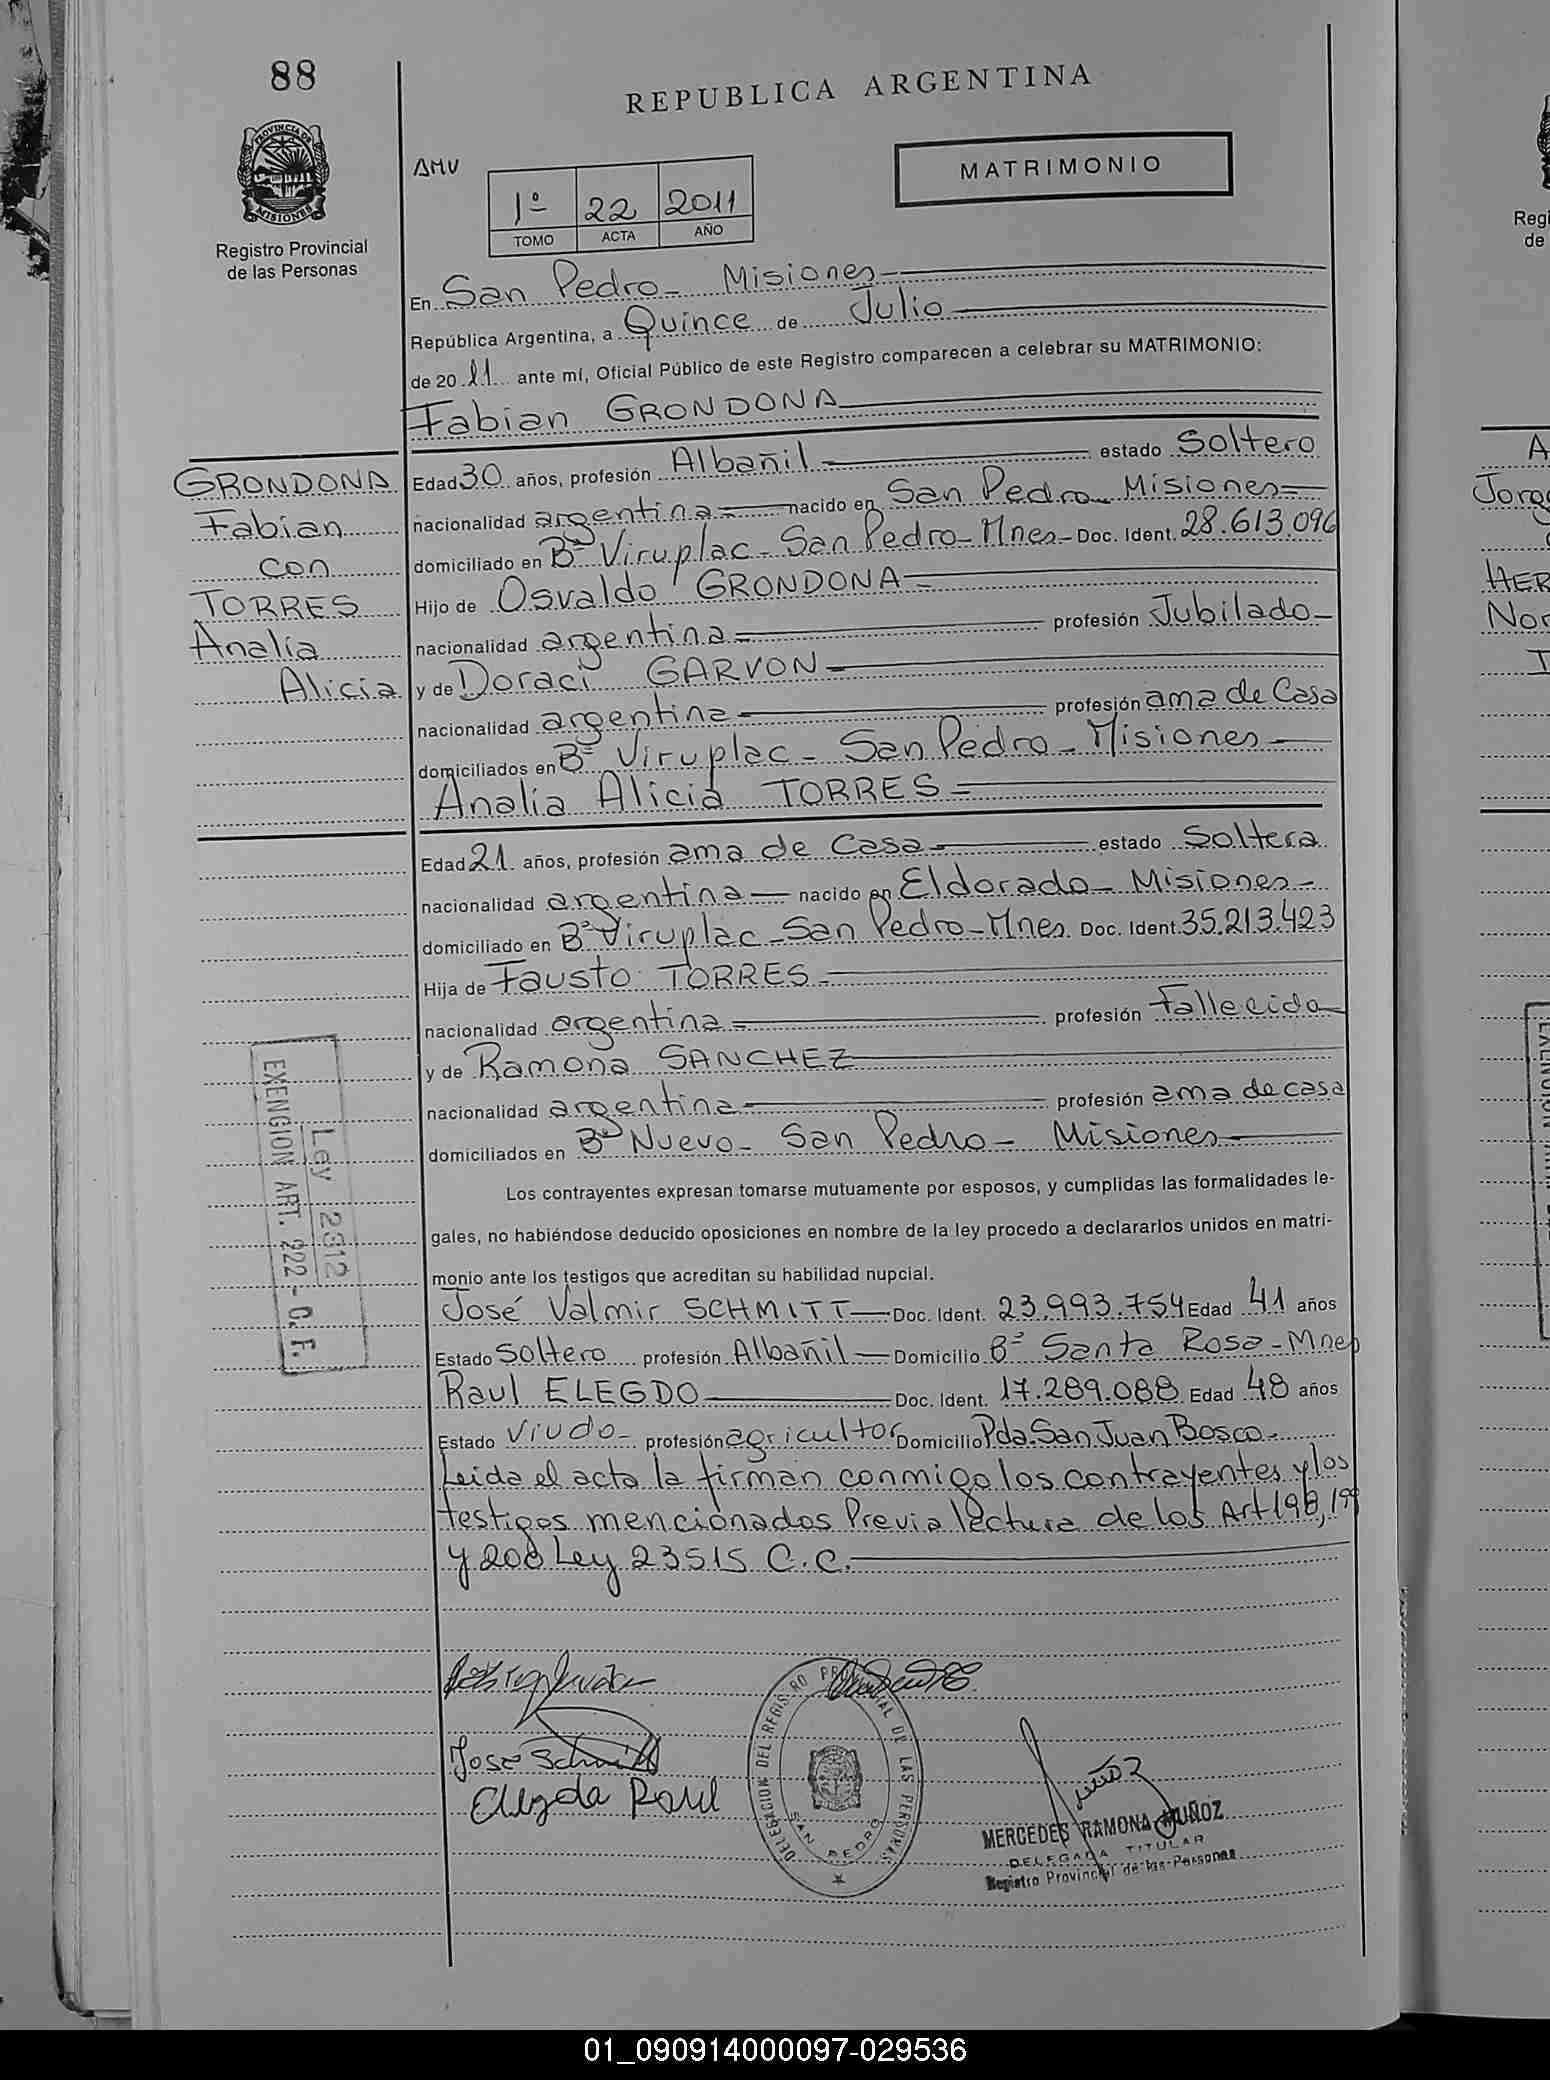 88
REPUBLICA ARGENTINA
PROVINCIA DE
MISIONES
Registro Provincial
de las Personas
AMV
1º 22 2011
TOMO ACTA AÑO
MATRIMONIO
En San Pedro - Misiones
República Argentina, a Quince de Julio
de 2011 ante mí, Oficial Público de este Registro comparecen a celebrar su MATRIMONIO:
Fabian GRONDONA
GRONDONA
Fabian
con
TORRES
Analía
Alicia
Edad 30 años, profesión Albañil estado Soltero
nacionalidad argentina nacido en San Pedro - Misiones
domiciliado en Bº Viruplac - San Pedro - Mnes - Doc. Ident. 28.613.096
Hijo de Osvaldo GRONDONA
nacionalidad argentina profesión Jubilado
y de Doraci GARVON
nacionalidad argentina profesión ama de Casa
domiciliados en Bº Viruplac - San Pedro - Misiones
Analía Alicia TORRES
Edad 21 años, profesión ama de Casa estado Soltera
nacionalidad argentina nacido en Eldorado - Misiones -
domiciliado en Bº Viruplac - San Pedro - Mnes. Doc. Ident. 35.213.423
Hija de Fausto TORRES
nacionalidad argentina profesión Fallecido
y de Ramona SANCHEZ
nacionalidad argentina profesión ama de casa
domiciliados en Bº Nuevo - San Pedro - Misiones
Ley 2312
EXENCION ART. 222 - C. F.
Los contrayentes expresan tomarse mutuamente por esposos, y cumplidas las formalidades le-
gales, no habiéndose deducido oposiciones en nombre de la ley procedo a declararlos unidos en matri-
monio ante los testigos que acreditan su habilidad nupcial.
José Valmir SCHMITT Doc. Ident. 23.993.754 Edad 41 años
Estado Soltero profesión Albañil Domicilio Bº Santa Rosa - Mnes
Raul ELEGDO Doc. Ident. 17.289.088 Edad 48 años
Estado Viudo - profesión agricultor Domicilio Pda. San Juan Bosco -
Leida el acta la firman conmigo los contrayentes y los
testigos mencionados Previa lectura de los Art 198, 199
y 200 Ley 23515 C.C.
José Schmitt
Raul
DELEGACION DEL REGISTRO PROVINCIAL DE LAS PERSONAS
SAN PEDRO
Muñoz
MERCEDES RAMONA MUÑOZ
DELEGADA TITULAR
Registro Provincial de las Personas
Regi
de
A
Jorg
HER
Nor
01_090914000097-029536